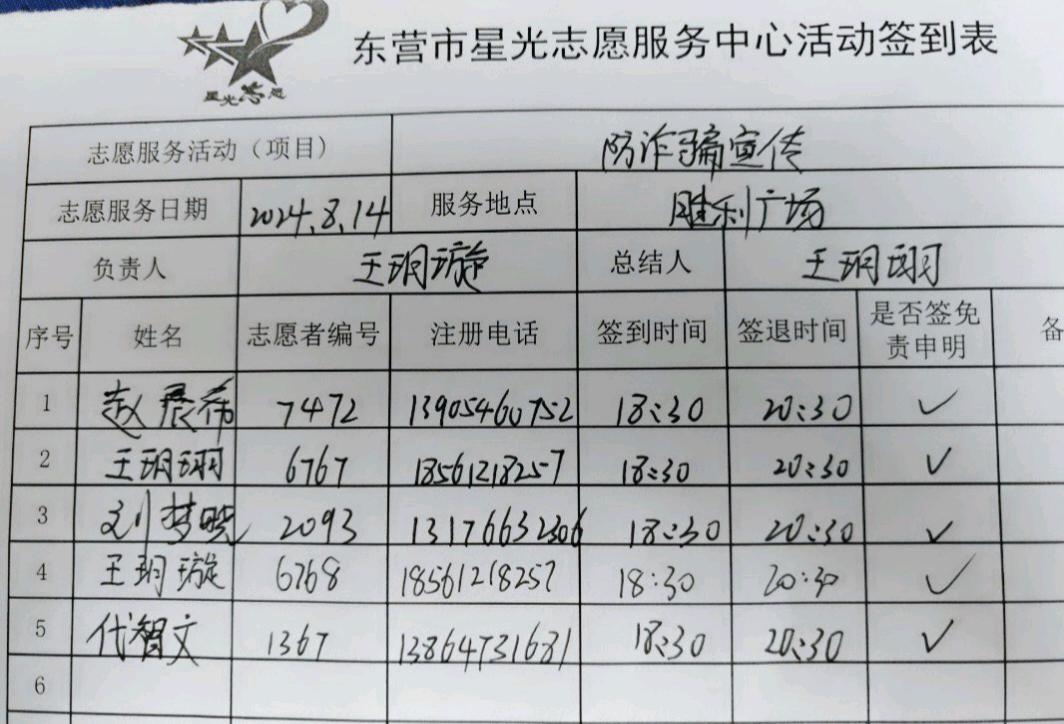 星光志愿
东营市星光志愿服务中心活动签到表
志愿服务活动（项目） 防诈骗宣传
志愿服务日期 2024.8.14 服务地点 胜利广场
负责人 王玥璇 总结人 王玥翊
序号 姓名 志愿者编号 注册电话 签到时间 签退时间 是否签免责申明 备
1 赵晨希 7472 13905460752 18:30 20:30 ✓
2 王玥翊 6767 18561218257 18:30 20:30 ✓
3 刘梦晓 2093 13176632306 18:30 20:30 ✓
4 王玥璇 6768 18561218257 18:30 20:30 ✓
5 代智文 1367 13864731681 18:30 20:30 ✓
6